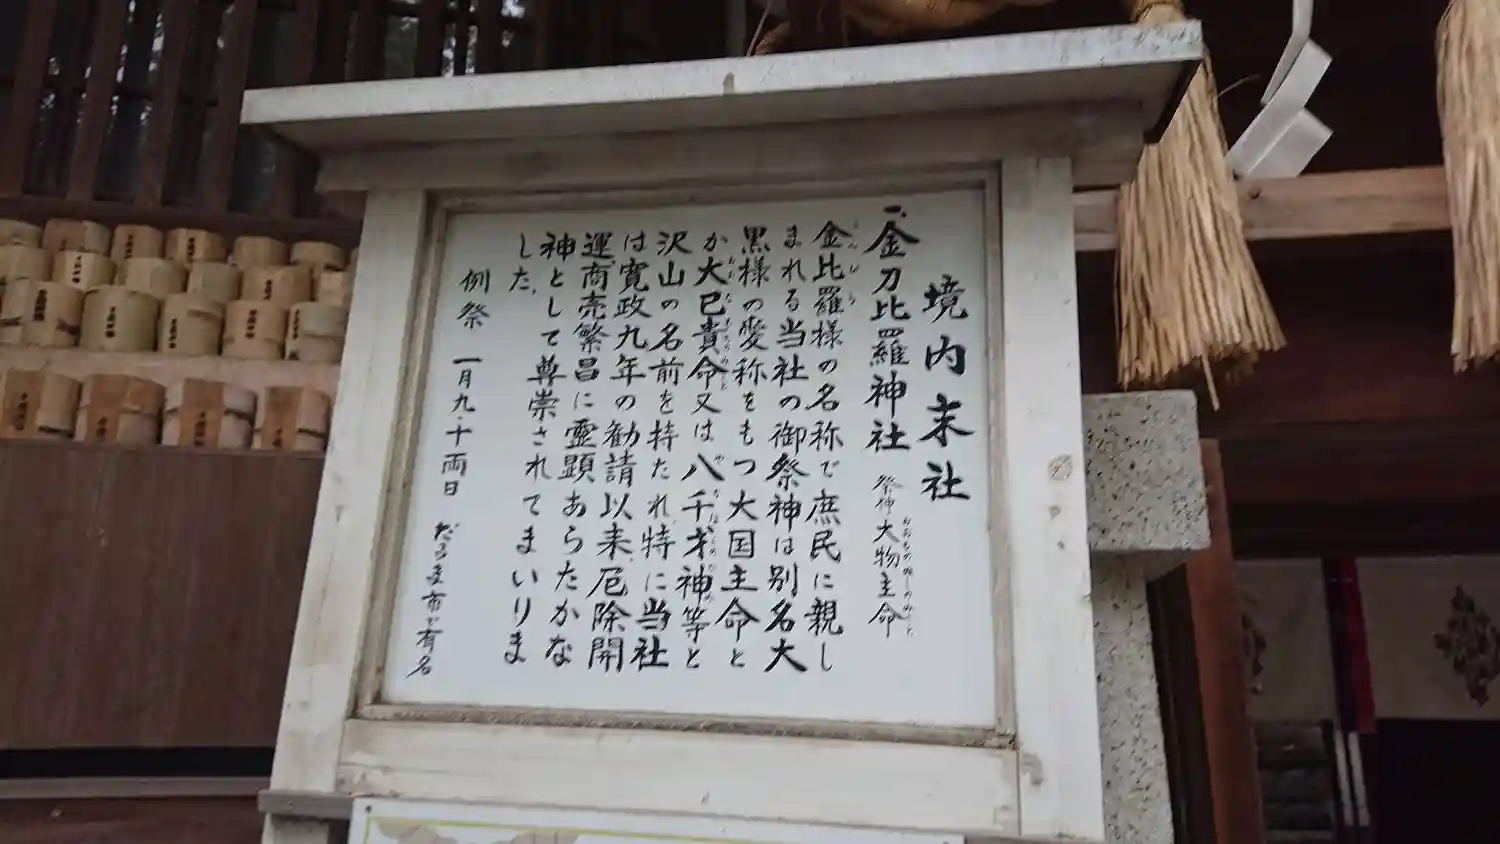 境内末社
一、金刀比羅神社 祭神 大物主命
金比羅様の名称で庶民に親し
まれる当社の御祭神は別名大
黒様の愛称をもつ大国主命と
か大已貴命又は八千才神等と
沢山の名前を持たれ、特に当社
は寛政九年の勧請以来、厄除開
運、商売繁昌に霊顕あらたかな
神として尊崇されてまいりま
した。
例祭 一月九・十両日 だるま市で有名